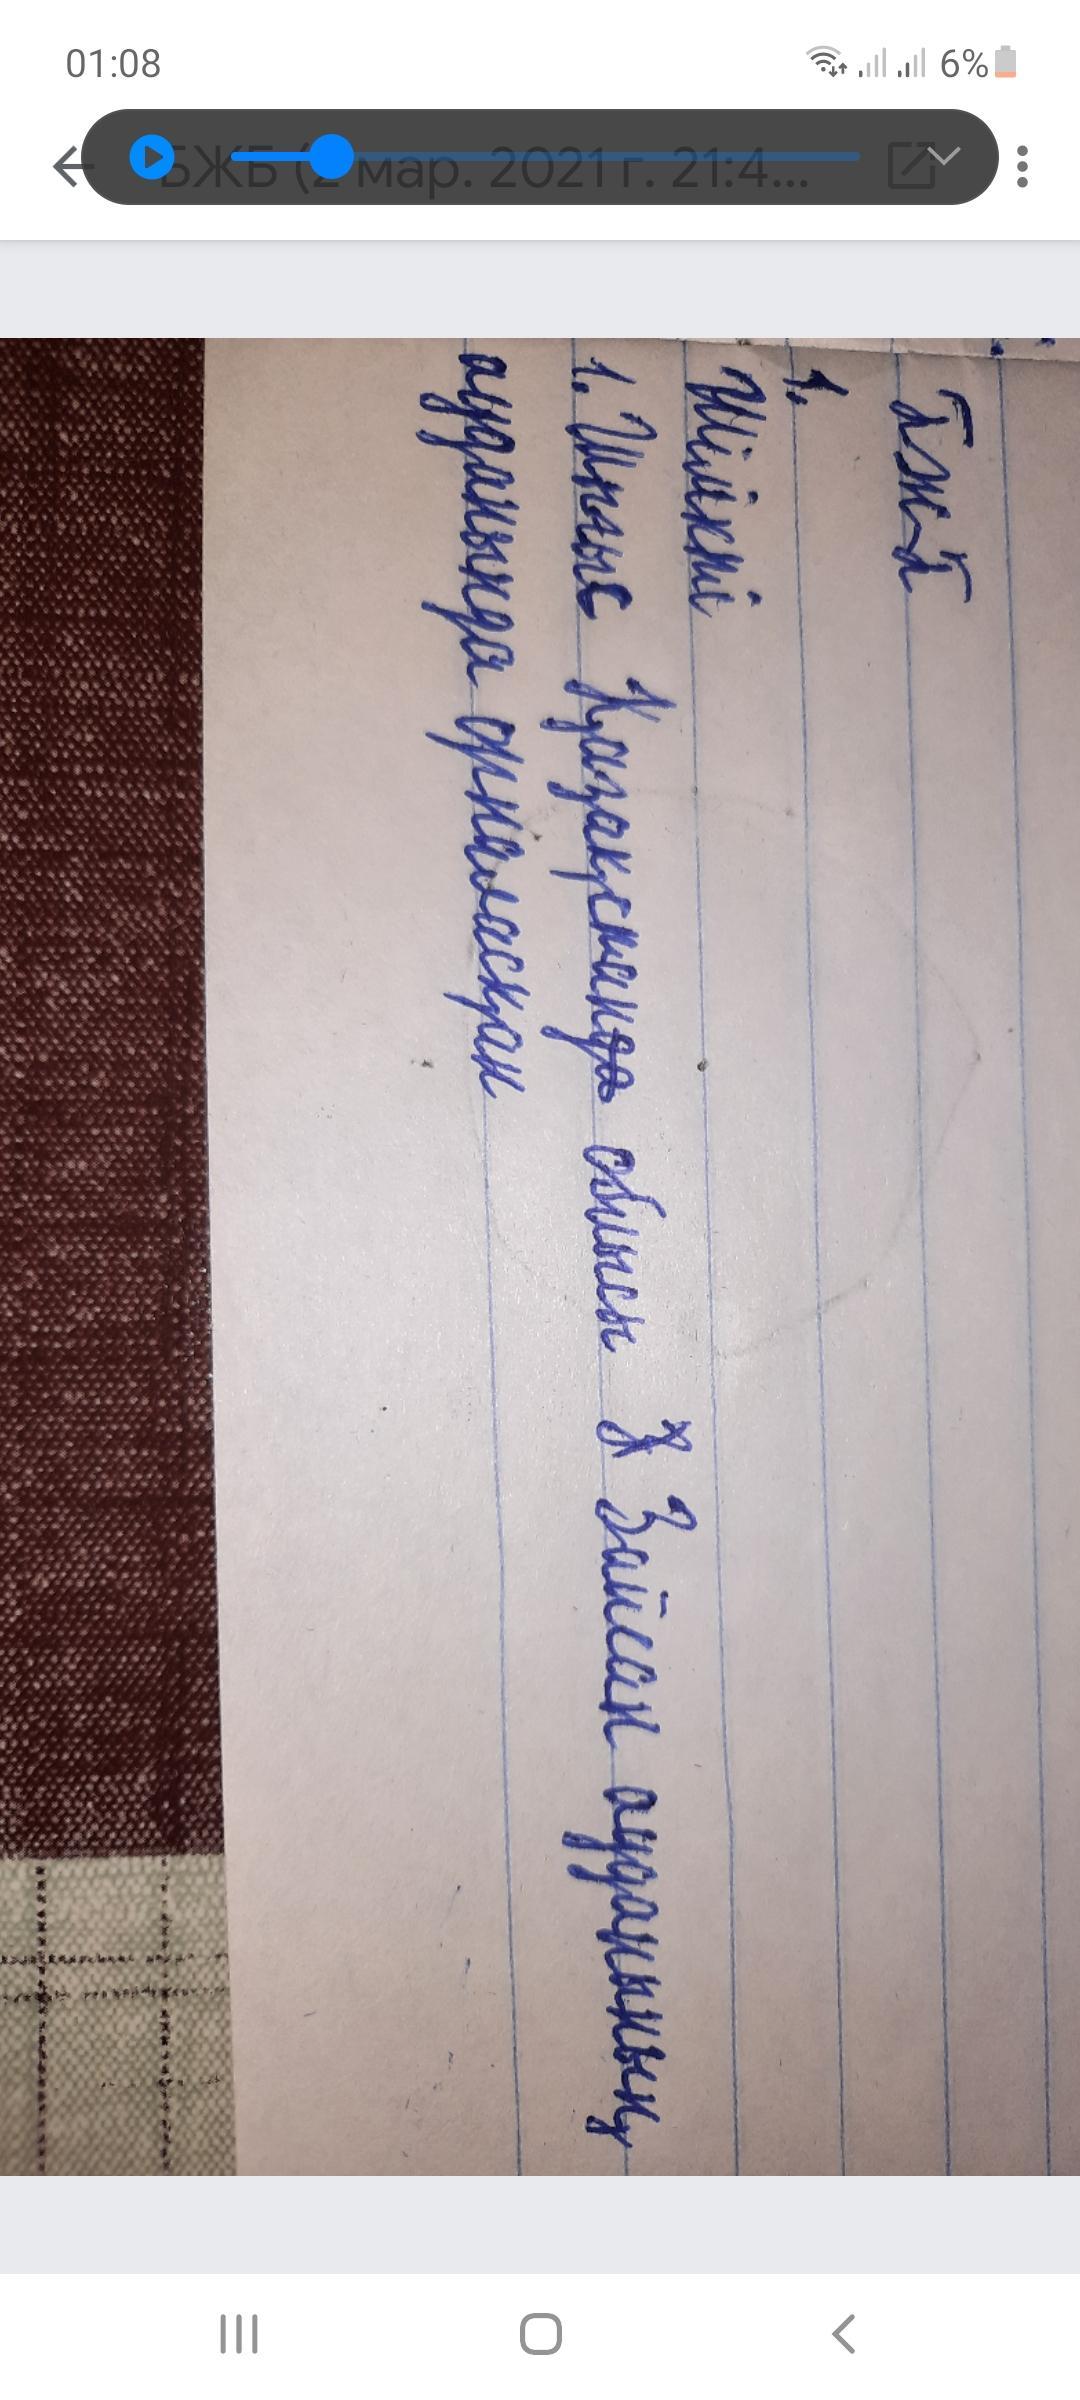 01:08
6%
БЖБ (2 мар. 2021 г. 21:4...
БЖБ
1.
Шілікті
1. Шығыс Қазақстанда облысы Зайсан ауданының
ауданында орналасқан